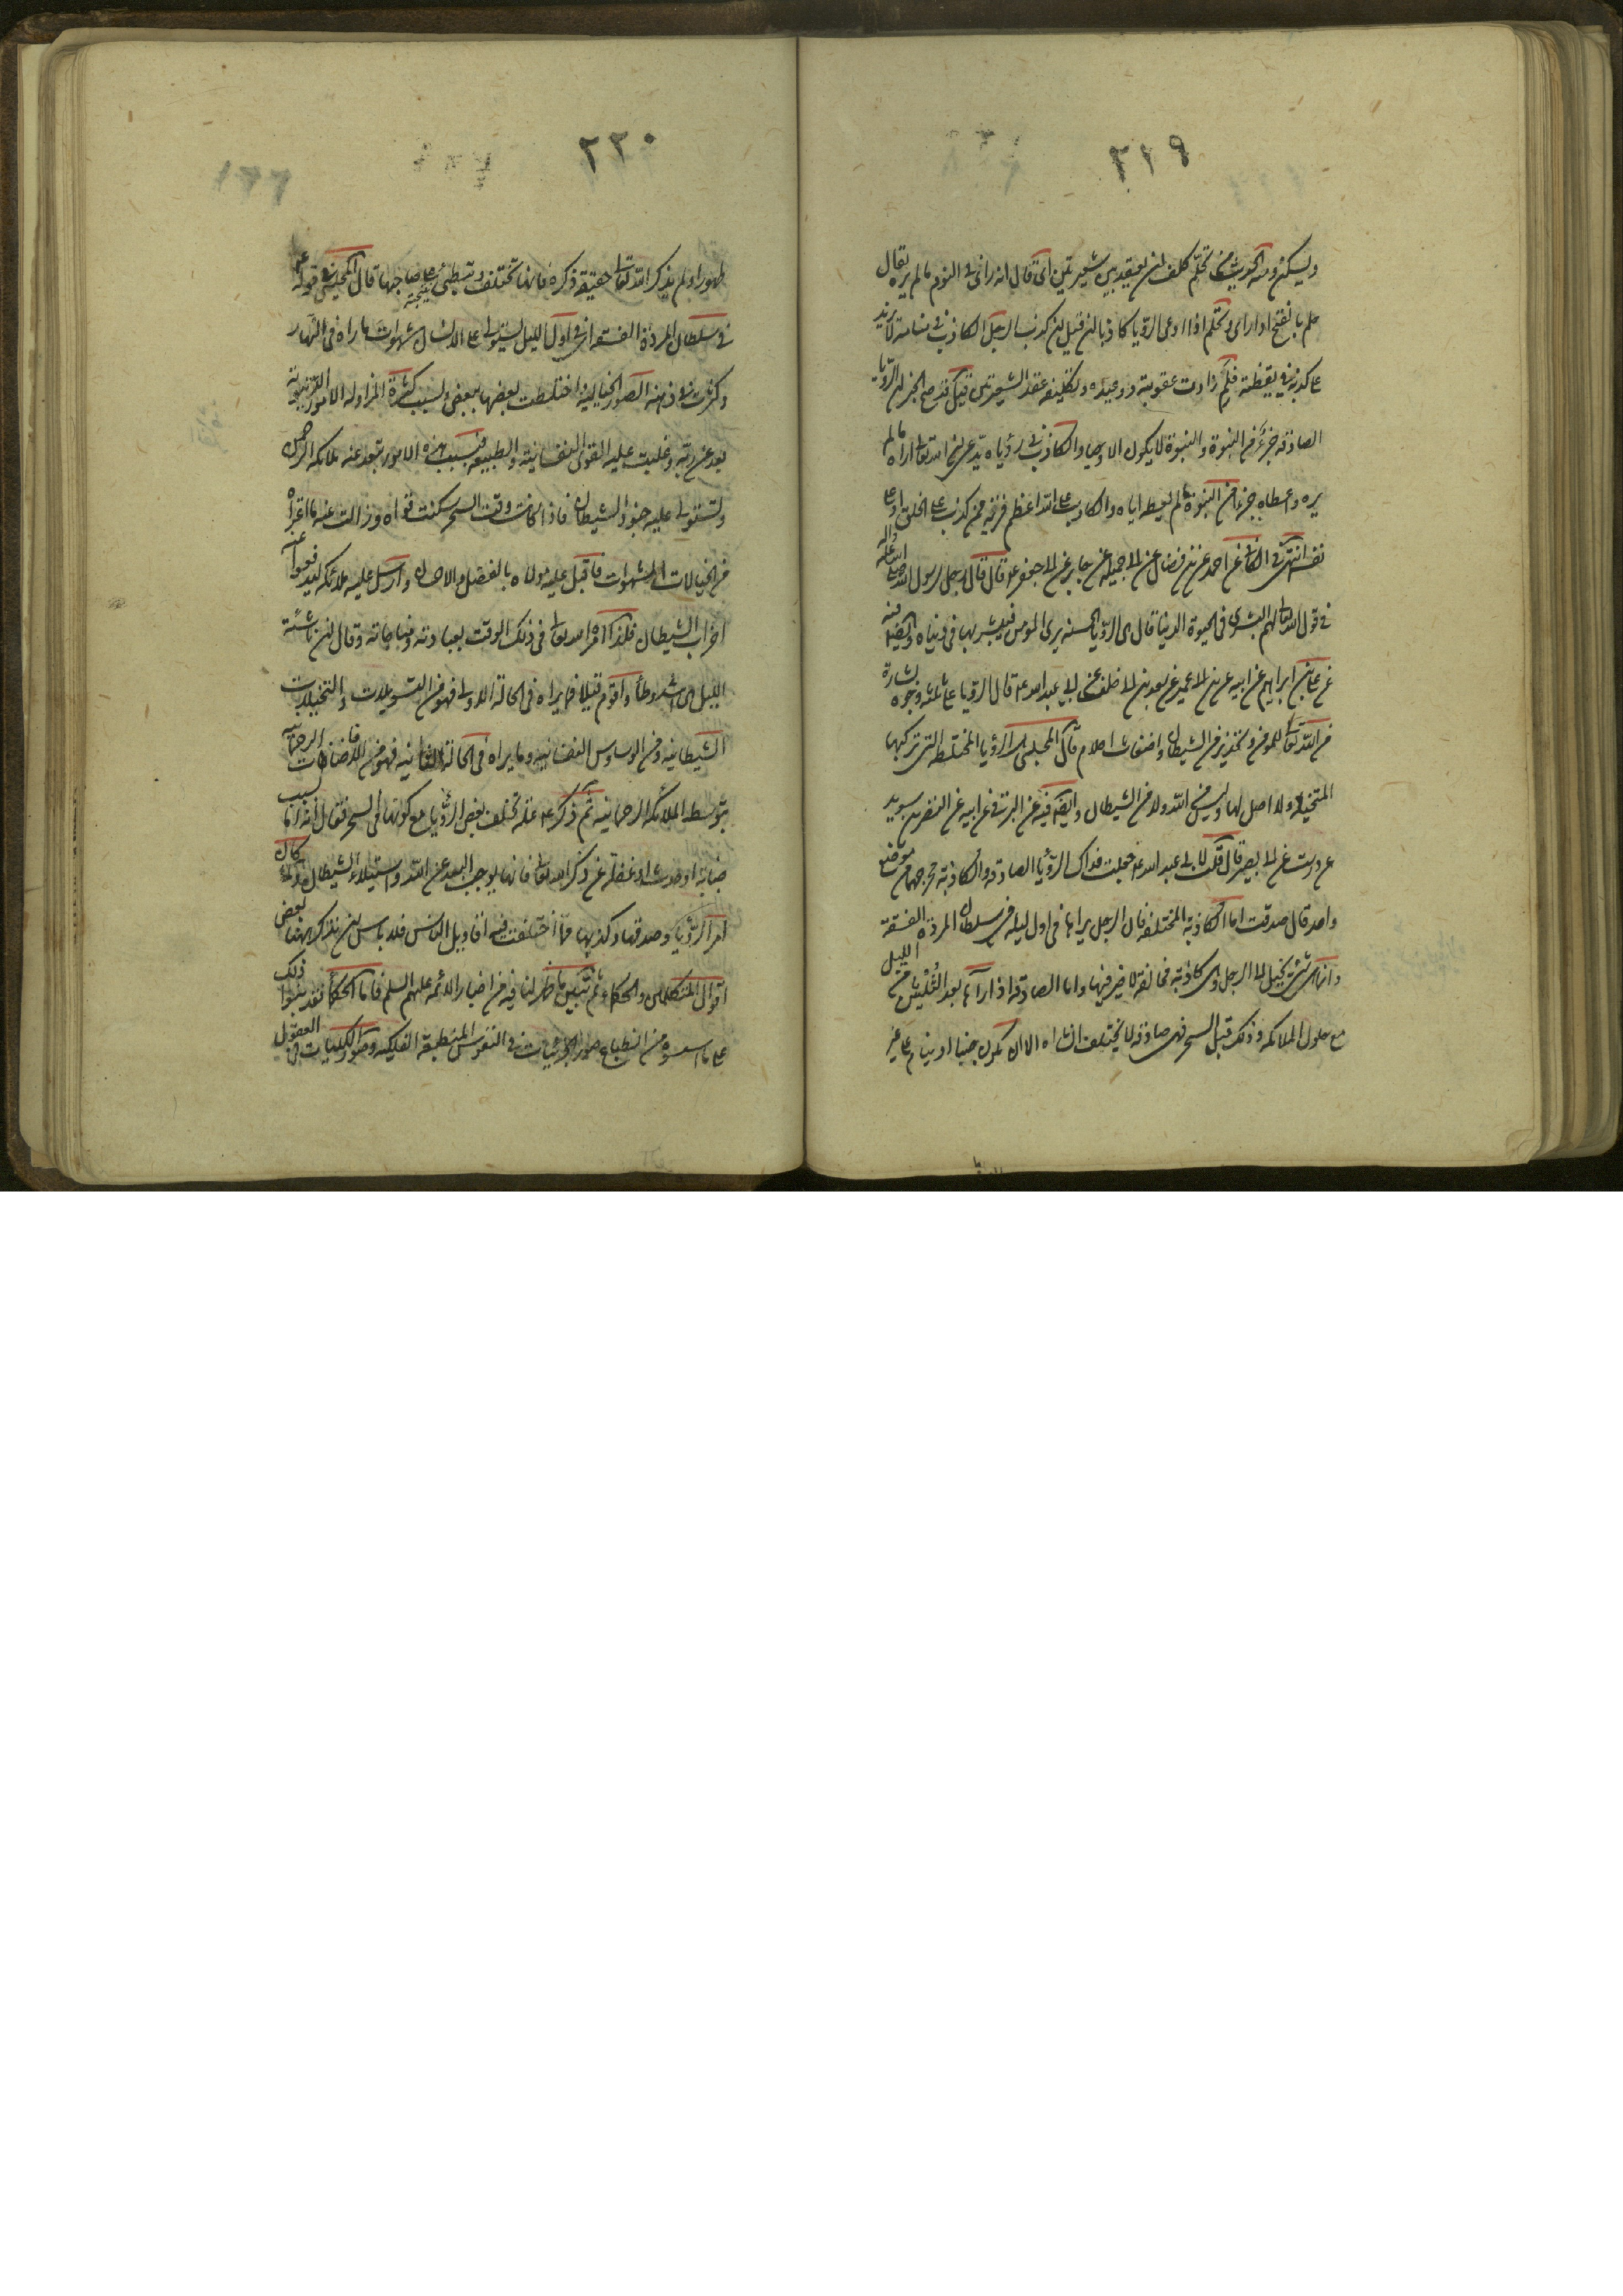 ٢١٩
ويسكن ومنه الحديث من تحلم كلف ان يعقد بين شعيرتين اى قال انه راى فى النوم ما لم يره يقال
حلم بالفتح اذا راى وتحلم اذا ادعى الرؤيا كاذبا فان قيل ان كذب الرجل الكاذب فى منامه لا يزيد
على كذبه فى يقظته فلم زادت عقوبته ووعيده وتكليفه عقد الشعيرتين قيل قد صح الخبر ان الرؤيا
الصادقة جزء من النبوة والنبوة لا يكون الا وحيا والكاذب فى رؤياه يدعى ان الله تعالى اراه ما لم
يره واعطاه جزءا من النبوة لم يعطه اياه والكاذب على الله اعظم فرية ممن كذب على الخلق او على
نفسه انتهى فى الكافى عن احمد عن ابن فضال عن ابى جميلة عن جابر عن ابى جعفر ع قال قال رجل لرسول الله صلى الله عليه واله
فى قول الله تعالى لهم البشرى فى الحيوة الدنيا قال هى الرؤيا الحسنة يرى المؤمن فيبشر بها فى دنياه وايضا فيه
عن على بن ابراهيم عن ابيه عن ابن ابى عمير عن سعد بن ابى خلف عن ابى عبد الله ع قال الرؤيا على ثلثة وجوه بشارة
من الله تعالى للمؤمن وتحذير من الشيطان واضغاث احلام قال المجلسى الرؤيا المختلطة التى تركبها
المتخيلة ولا اصل لها وليس من الله ولا من الشيطان وايضا فيه عن البرقى عن ابيه عن النضر بن سويد
عن درست عن ابى بصير قال قلت لابى عبد الله ع جعلت فداك الرؤيا الصادقة والكاذبة مخرجهما من موضع
واحد قال صدقت اما الكاذبة المختلفة فان الرجل يراها فى اول ليله فى سلطان المردة الفسقة
وانما هى شىء يخيل الى الرجل وهى كاذبة مخالفة لا خير فيها واما الصادقة اذا رآها بعد الثلثين من الليل
مع حلول الملائكة وذلك قبل السحر فهى صادقة لا تختلف انشاء الله الا ان يكون جنبا او ينام على غير
٢٢٠
طهور او لم يذكر الله تعالى حقيقة ذكره فانها تختلف وتبطئ على صاحبها قال المجلسى قوله ع
فى سلطان المردة الفسقة اى فى اول الليل يستولى على الانسان شهوات ما راه فى النهار
وكثرت فى ذهنه الصور الخيالية اختلطت بعضها ببعض وبسبب كثرة المزاولة الامور الدنيوية
بعد عن ربه وغلبت عليه القوى النفسانية والطبيعية فبسبب هذه الامور تبعد عنه ملائكة الرحمن
وتستولى عليه جنود الشيطان فاذا كانت وقت السحر سكنت قواه وزالت عنه ما اعتراه
من الخيالات الشهوات فاقبل عليه مولاه بالفضل والاحسان وارسل عليه ملائكة ليدفعوا عنه
احزاب الشيطان فلذا امر الله تعالى فى ذلك الوقت بعبادته ومناجاته وقال ان ناشئة
الليل هى اشد وطأ واقوم قيلا فما يراه فى الحالة الاولى فهو من التسويلات والتخييلات
الشيطانية ومن الوساوس النفسانية وما يراه فى الحالة الثانية فهو من الافاضات الرحمانية
بتوسط الملائكة الرحمانية ثم ذكر ع علة تخلف بعض الرؤيا مع كونها فى السحر فقال انه اما بسبب
جنابة او حدث او غفلة عن ذكر الله تعالى فانها يوجب البعد عن الله واستيلاء الشيطان ولما كان
امر الرؤيا وصدقها وكذبها مما اختلفت فيه اقاويل الناس فلا باس ان نذكر هنا بعض
اقوال المتكلمين والحكماء ثم نبين ما ظهر لنا فيه من اخبار الائمة عليهم السلم فاما الحكماء فقد بنوا ذلك
على ما اسسوه من انطباع صور الجزئيات فى النفوس المنطبعة الفلكية وصور الكليات فى العقول